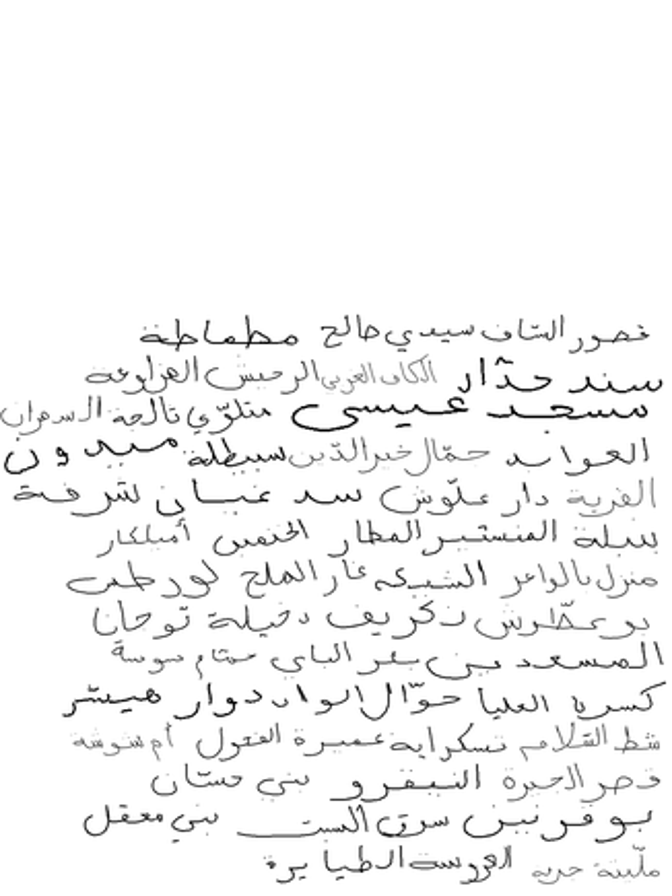 قصور الساف سيدي صالح مطماطة
سند حدّار الكاف الغربي الرحيش الهزاوعة
مسجد عيسى متلوّي تالجة السمران
العوابد حمّال خير الدّين سبيطلة ميدون
القرية دار علّوش سد غبان شرفة
سيلة المنستير المطار الخنقين أميلكار
منزل بالواعر الشبيكة غار الملح
بو عطّوش زكريف دخيلة توجان
المسعدين بقر الباي حشام سوسة
كسرى العليا حوّال الواد دوار هيشر
شط السّلام تسكراية عميرة الفحول أم شوشة
قصر الحيرة النيفرو بني حسّان
بوفرنين سوق السبت بني معقل
ملّيتة جربة العروسة الطيايرة